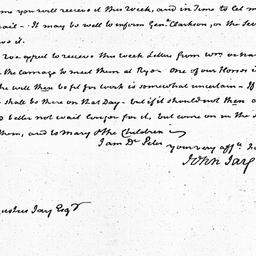 you will receive it this week, and in time to let m
wait - It may be well to inform Genl. Clarkson, or the Se
it
We expect to receive this week Letters from Wm
the carriage to meet them at Rye. One of our Horses i
he will then be fit for work is somewhat uncertain - If
shall be there on that Day - but if it should not then a
better not wait longer for it, but come on in the
them, and to Mary & the Children
I am Dr Peter
your very afft.
John Jay
Jay Esqr